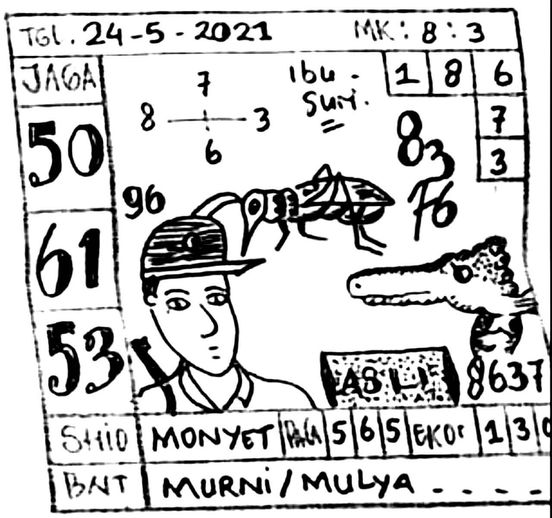 TGL. 24-5-2021 MK: 8:3
JAGA
50
61
53
7
8 3
6
Ibu-
Suri.
1 8 6
7
3
83
76
96
ASLI
8637
SHIO MONYET 5 6 5 EKOR 1 3 0
BNT MURNI/MULYA - - - -